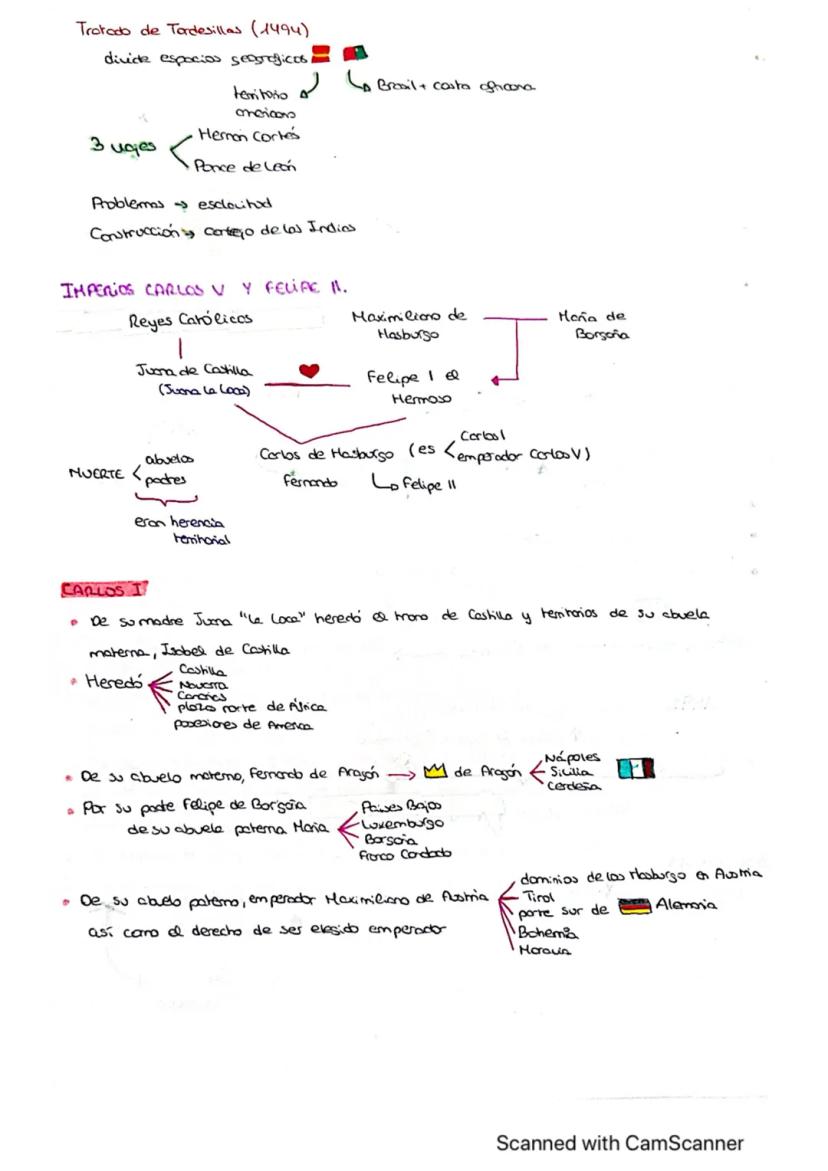 Tratado de Tordesillas (1494)
divide espacios geográficos
territorio americano
Brasil + costa africana
3 viajes
Hernán Cortés
Ponce de León
Problemas → esclavitud
Construcción → consejo de las Indias
IMPERIOS CARLOS V Y FELIPE II.
Reyes Católicos
Maximiliano de Hasburgo
María de Borgoña
Juana de Castilla
(Juana La Loca)
Felipe I el Hermoso
Carlos de Hasburgo (es
Carlos I
emperador Carlos V)
Fernando
Felipe II
MUERTE
abuelos
padres
eran herencia
territorial
CARLOS I
• De su madre Juana "La Loca" heredó el trono de Castilla y territorios de su abuela
materna, Isabel de Castilla
• Heredó
Castilla
Navarra
Canarias
plaza norte de África
posesiones de America
• De su abuelo materno, Fernando de Aragón → de Aragón
Nápoles
Sicilia
Cerdeña
• Por su padre Felipe de Borgoña
de su abuela paterna María
Países Bajos
Luxemburgo
Borgoña
Franco Condado
• De su abuelo paterno, emperador Maximiliano de Austria
así como el derecho de ser elegido emperador
dominios de los Hasburgo en Austria
Tirol
parte sur de Alemania
Bohemia
Moravia
Scanned with CamScanner